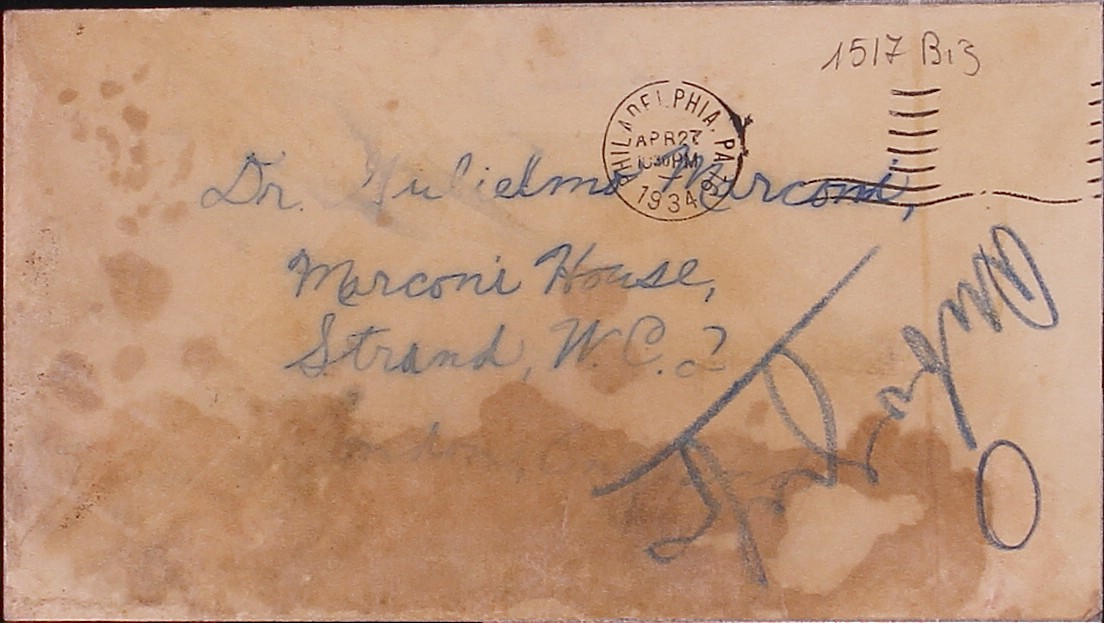 1517 Biz
PHILADELPHIA, PA.
APR 27
10:30 PM
1934
Dr. Gulielmo Marconi,
Marconi House,
Strand, W.C.2
London,